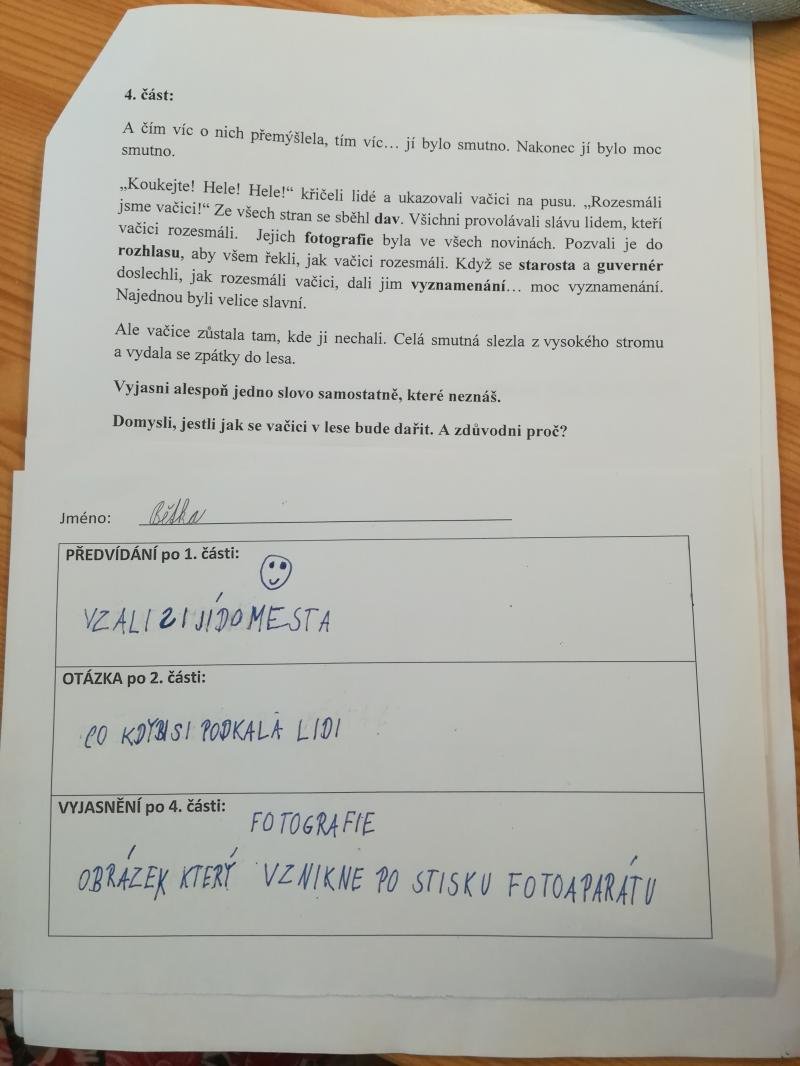 4. část:
A čím víc o nich přemýšlela, tím víc… jí bylo smutno. Nakonec jí bylo moc
smutno.
„Koukejte! Hele! Hele!“ křičeli lidé a ukazovali vačici na pusu. „Rozesmáli
jsme vačici!“ Ze všech stran se sběhl dav. Všichni provolávali slávu lidem, kteří
vačici rozesmáli. Jejich fotografie byla ve všech novinách. Pozvali je do
rozhlasu, aby všem řekli, jak vačici rozesmáli. Když se starosta a guvernér
doslechli, jak rozesmáli vačici, dali jim vyznamenání… moc vyznamenání.
Najednou byli velice slavní.
Ale vačice zůstala tam, kde ji nechali. Celá smutná slezla z vysokého stromu
a vydala se zpátky do lesa.
Vyjasni alespoň jedno slovo samostatně, které neznáš.
Domysli, jestli jak se vačici v lese bude dařit. A zdůvodni proč?
Jméno: Bětka
PŘEDVÍDÁNÍ po 1. části:
VZALI SI JÍ DO MESTA
OTÁZKA po 2. části:
CO KDYBI SI PODKALA LIDI
VYJASNĚNÍ po 4. části:
FOTOGRAFIE
OBRÁZEK KTERÝ VZNIKNE PO STISKU FOTOAPARÁTU